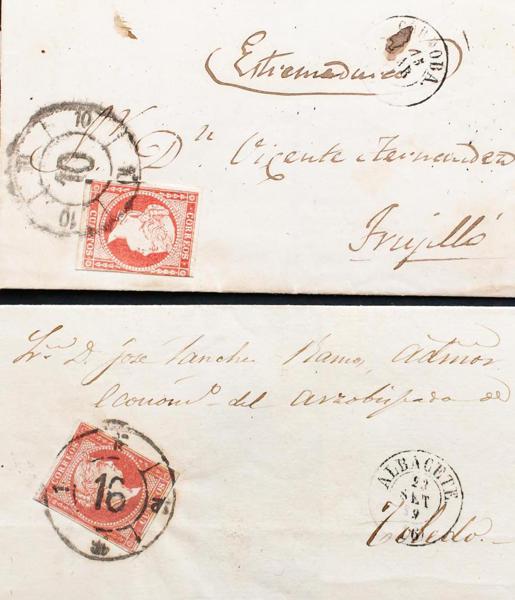 CORDOBA.
15
AB
Estremadura
10
10
10
Dⁿ Vicente Fernandez
CORREOS
CUATOS
Trujillo
Sʳ D. José Sanchez Ramos, admor
económº del arzobispado de
CORREOS
16
ALBACETE
23
SET
Toledo.